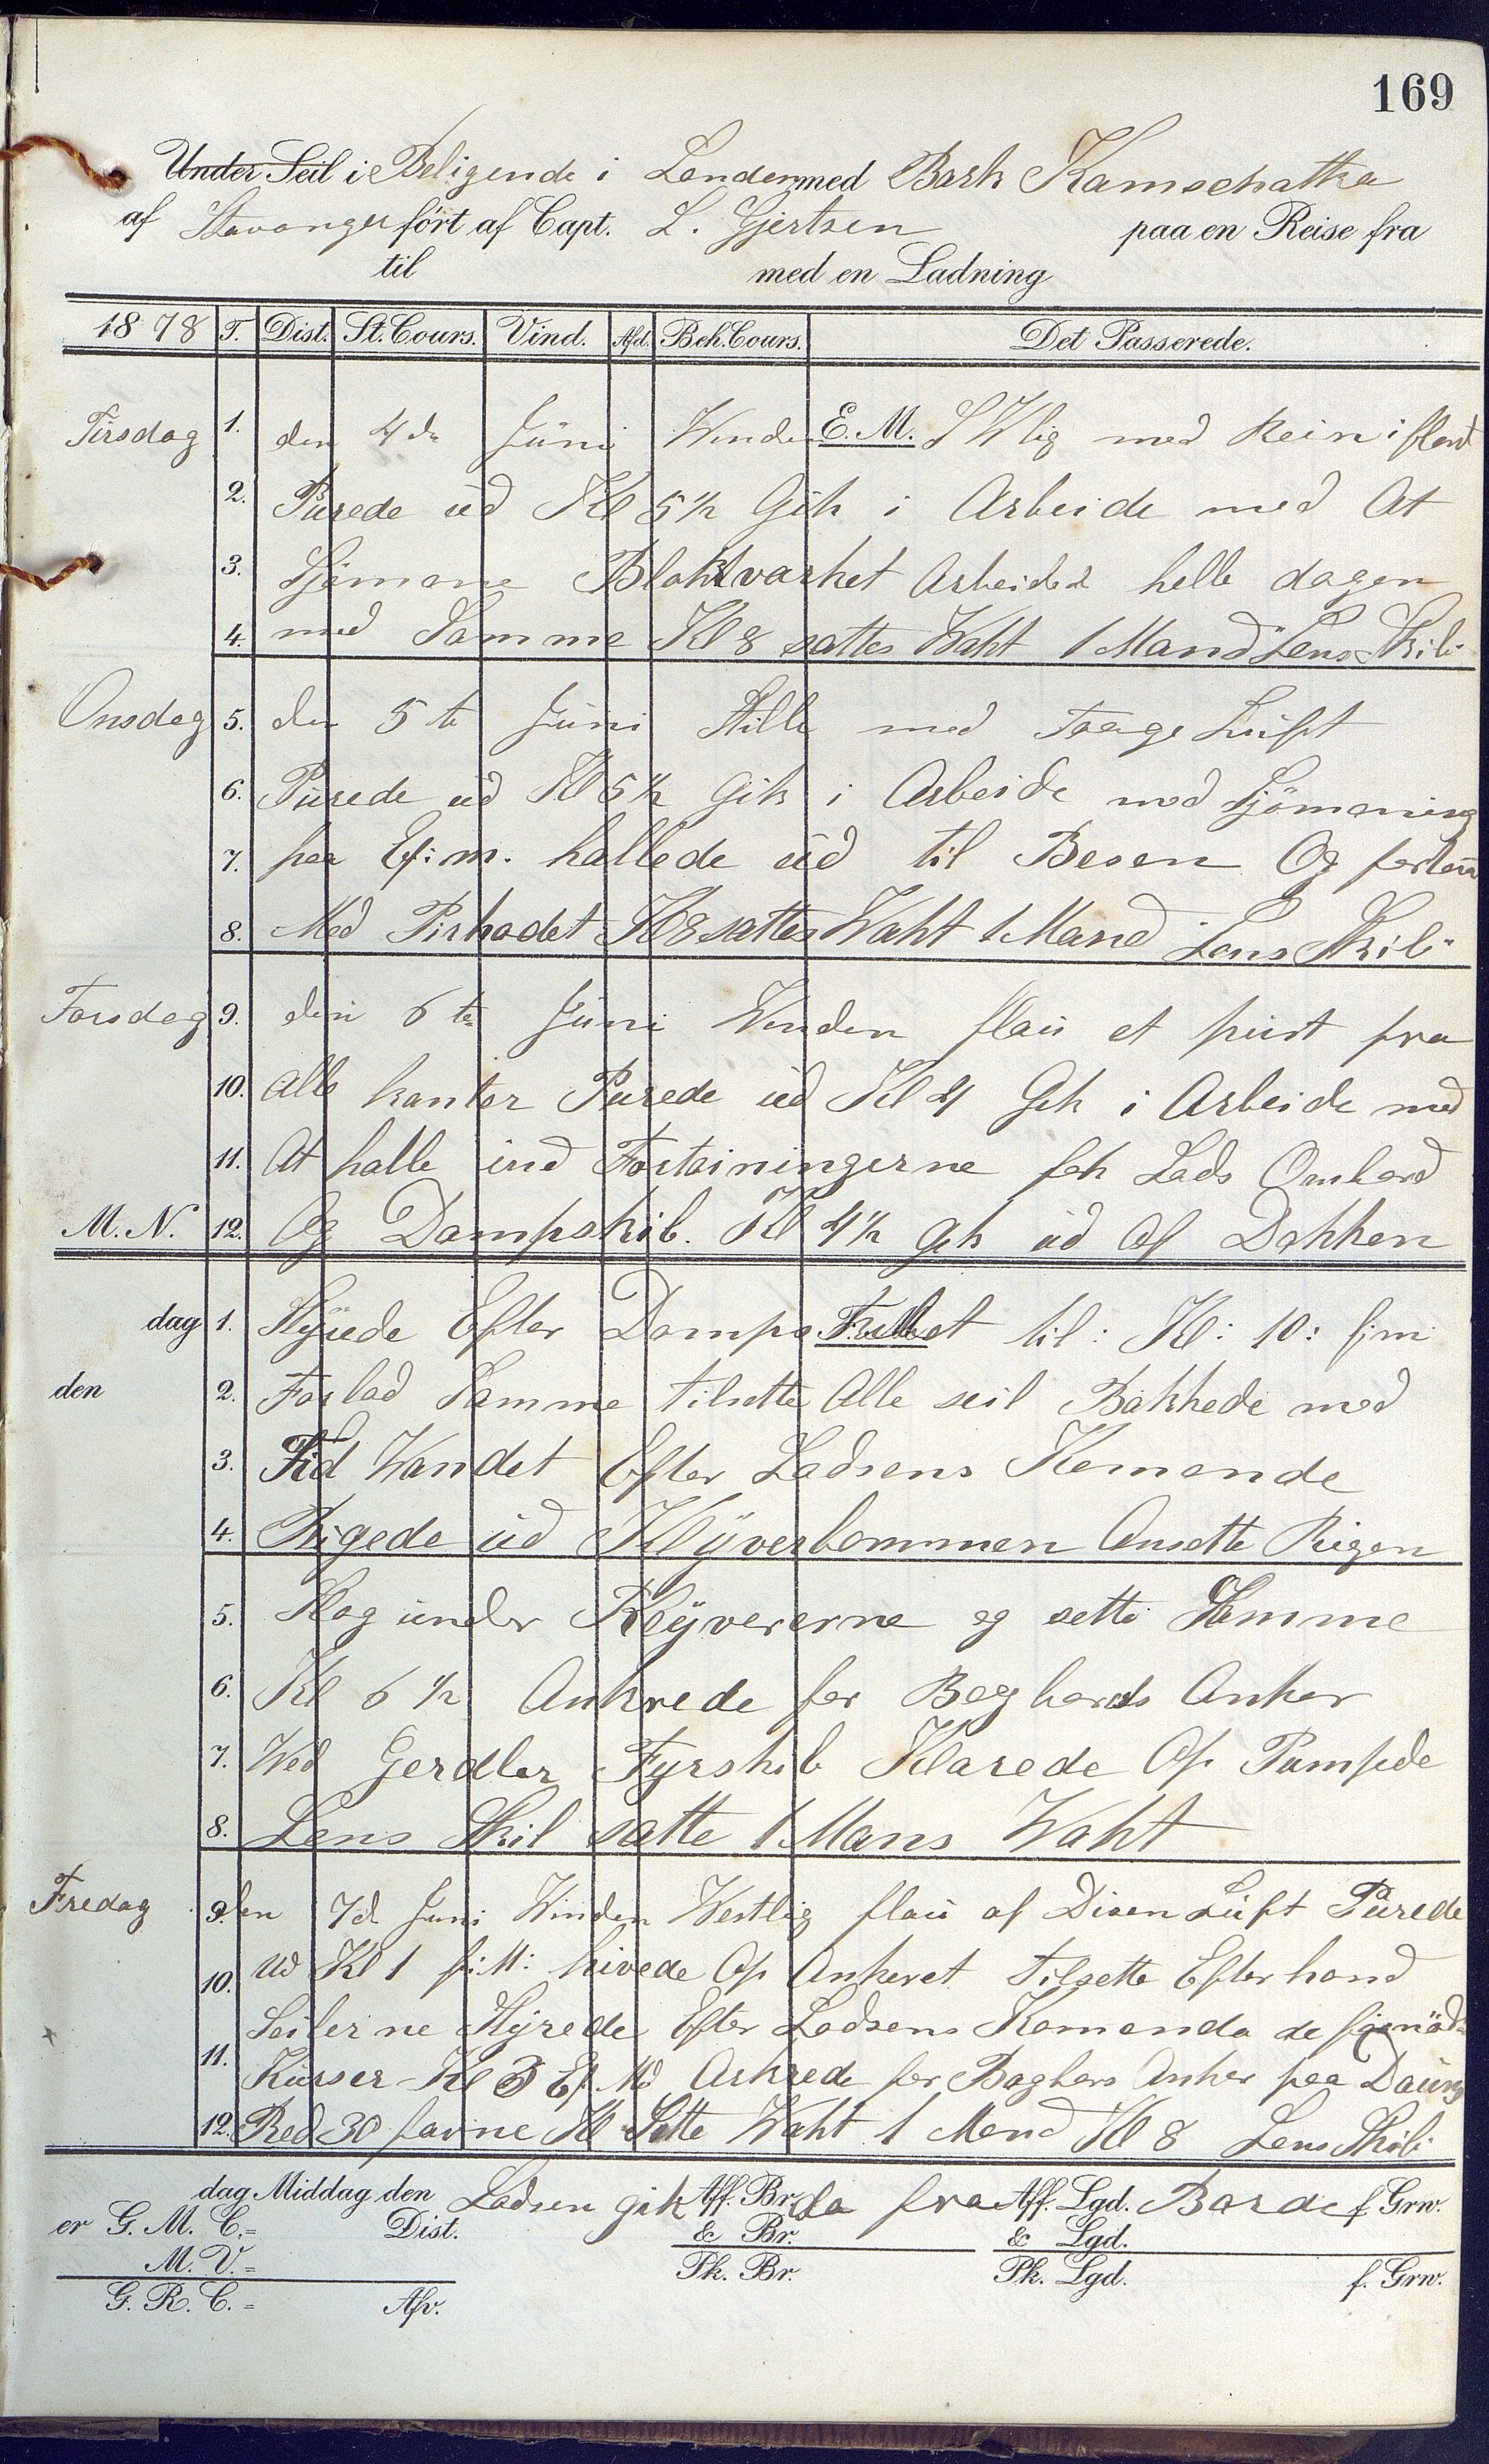 169
Under Seil i Beligende i London med Bark Kamschatka
af Stavanger ført af Capt. L. Gjertsen paa en Reise fra
til med en Ladning
1878 T. Dist. St. Cours. Vind. Afd. Beh. Cours. Det Passerede.
Tirsdag 1. den 4de Juni Winden E. M. SWlig med Rein i flend
2. Purede ud Kl 5½ Gik i Arbeide med At
3. Sjömane Blokkvarket Arbeided helle dagen
4. med Samme Kl 8 sattes Waht 1 Mand Lens Skib
Onsdag 5. den 5te Juni Stille med Taage Luft
6. Purede ud Kl 5½ Gik i Arbeide med Sjömaning
7. paa Ef: m. hallede ud til Besen Og
8. Med Pirhodet Kl 8 sattes Waht 1 Mand Lens Skib
Torsdag 9. den 6te Juni Winden flau et pust fra
10. alle kanter Purede ud Kl 4 Gik i Arbeide med
11. At halle ind Fortoiningerne fek Lods Ombord
M. N. 12. Og Dampskib. Kl 4½ Gik ud Af Dokken
dag 1. Styrede Efter Damps F. M. et til: Kl: 10: f: m:
den 2. Forlod Samme tilsette Alle seil Bakkede med
3. Tid Wandet Efter Lodsens Komande
4. Rigede ud Klyverbommen Ansette Rigen
5. Slog under Klyvererne og sette Samme
6. Kl 6½ Ankrede for Bagbords Anker
7. Wed Gerdler Fyrskib Klarede Op Pumpede
8. Lens Skib satte 1 Mans Waht
Fredag 9. den 7d Juni Winden Westlig flau af Disen Luft Purede
10. ud Kl 1 f: M: hivede Op Ankeret tilsette Efterhand
Seilerne Styrede Efter Lodsens Komando de
11. Kurser Kl 3 Ef. Md Ankrede for Bagbors Anker paa Dauns
12. Red 30 favne Kl Sette Waht 1 Mand Kl 8 Lens Skib
dag Middag den Lodsen gik Aff. Br. da fra Aff. Lgd. Borde f. Grw.
er G. M. C. = Dist. & Br. & Lgd.
M. V. = Pk. Br. Pk. Lgd. f. Grw.
G. R. C. = Afv.